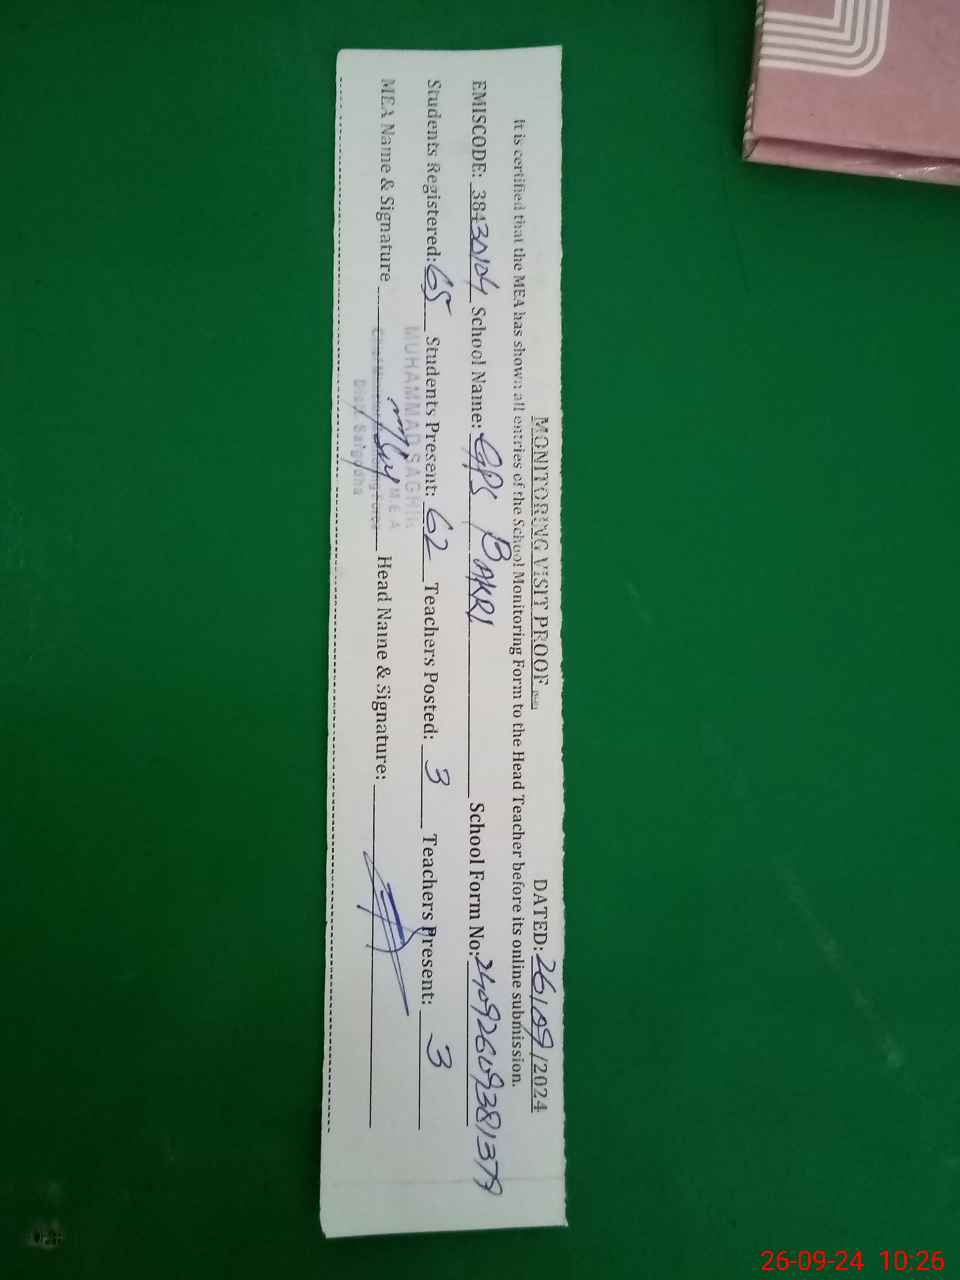 MONITORING VISIT PROOF
DATED: 26/09/2024
It is certified that the MEA has shown all entries of the School Monitoring Form to the Head Teacher before its online submission.
EMISCODE: 38430104 School Name: GPS BAKRI School Form No: 24092609381379
Students Registered: 65 Students Present: 62 Teachers Posted: 3 Teachers Present: 3
MUHAMMAD SAGHIR
MEA
MEA Name & Signature Head Name & Signature:
Distt. Sargodha
26-09-24 10:26